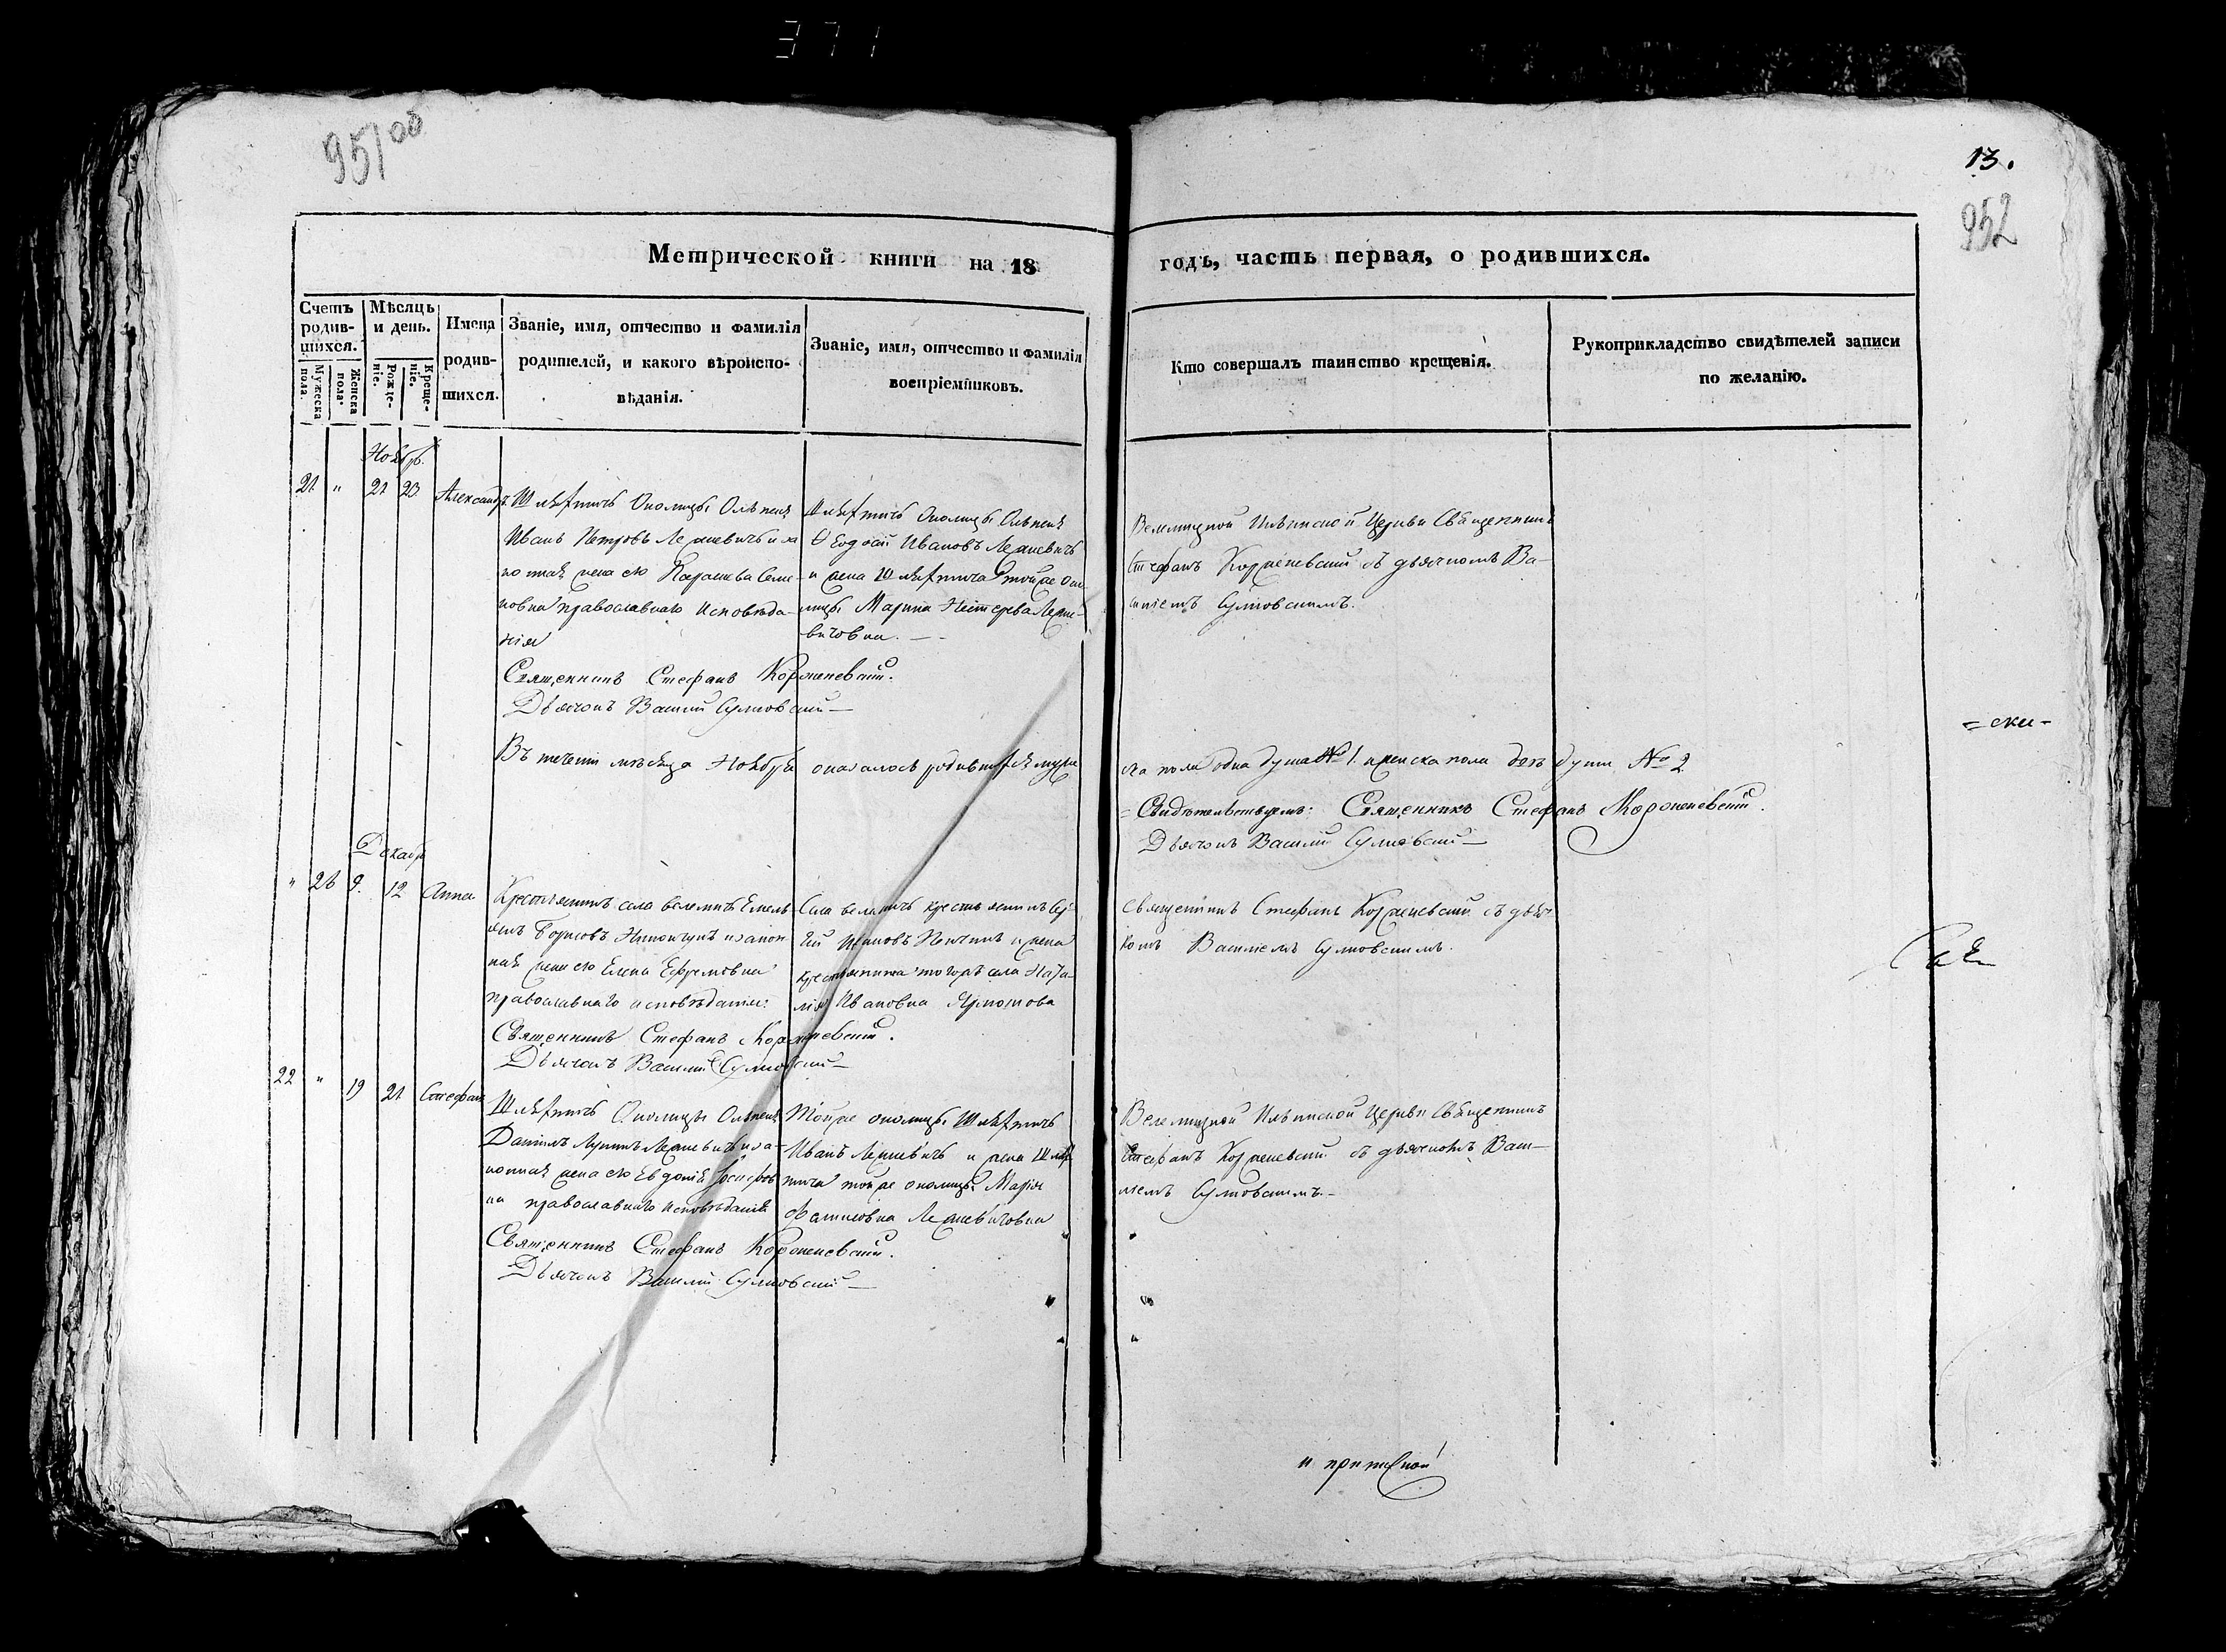 371
951 об
13.
952
Метрической книги на 18 годъ, часть первая, о родившихся.
Счетъ родившихся.
Мужеска пола.
Женска пола.
Мѣсяцъ и день.
Рожденіе.
Крещеніе.
Имена родившихся.
Званіе, имя, отчество и фамилія
родителей, и какого вѣроиспо-
вѣданія.
Званіе, имя, отчество и фамилія
воспріемниковъ.
Кто совершалъ таинство крещенія.
Рукоприкладство свидѣтелей записи
по желанію.
Ноябр.
21 " 21 23 Александръ
Шляхтичъ Околицы Ольпень
Иванъ Петровъ Лермевичъ и за
конная жена его Параскева Семе-
новна православнаго Исповѣда-
нія
Священникъ Стефанъ Корженевскій.
Дьячокъ Василій Сулковскій
Шляхтичъ Околицы Ольпень
Ѳеодосій Ивановъ
и жена Шляхтича тойже Око
лицы Марина
Велемицкой Ильинской Церкви Священникъ
Стефанъ Корженевскій съ дьячкомъ Ва-
силіемъ Сулковскимъ.
Въ теченіи мѣсяца Ноября оказалось родившихся муже
= ски -
ска пола одна душа № 1. женска пола двѣ души № 2
= Свидѣтельствуемъ: Священникъ Стефанъ Корженевскій.
Дьячокъ Василій Сулковскій
Декабр
" 26 9. 12 Анна
Крестьянинъ села Велемичъ Емель
янъ Борисовъ и закон
ная жена его Елена Ефремовна
православнаго исповѣданія:
Священникъ Стефанъ Корженевскій.
Дьячокъ Василій Сулковскій
Села Велемичъ крестьянинъ Сер
гій и жена
крестьянина тогожъ села Ната
лія Ивановна
Священникъ Стефанъ Корженевскій съ дьяч
комъ Василіемъ Сулковскимъ.
22 " 19 21 Стефанъ
Шляхтичъ Околицы Ольпень
Даніилъ и за-
конная жена его Евдокія
на православнаго исповѣданія
Священникъ Стефанъ Корженевскій.
Дьячокъ Василій Сулковскій
Тойже околицы Шляхтичъ
Иванъ и жена Шлях
тича тойже околицы Марія
Велемицкой Ильинской Церкви Священникъ
Стефанъ Корженевскій съ дьячкомъ Васи-
ліемъ Сулковскимъ.